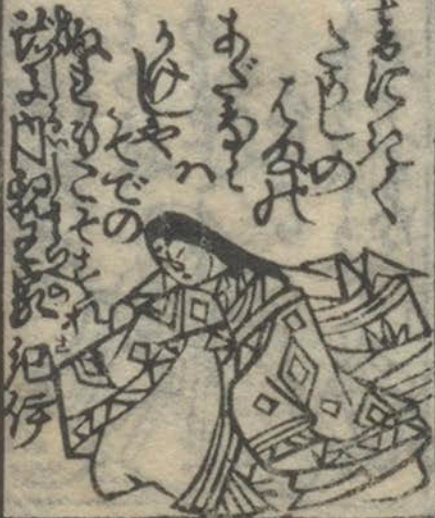 音にきく
たかしの
はまの
あだなミ
ハ
かけしや
そでの
ぬれもこそすれ
祐子内親王家紀伊